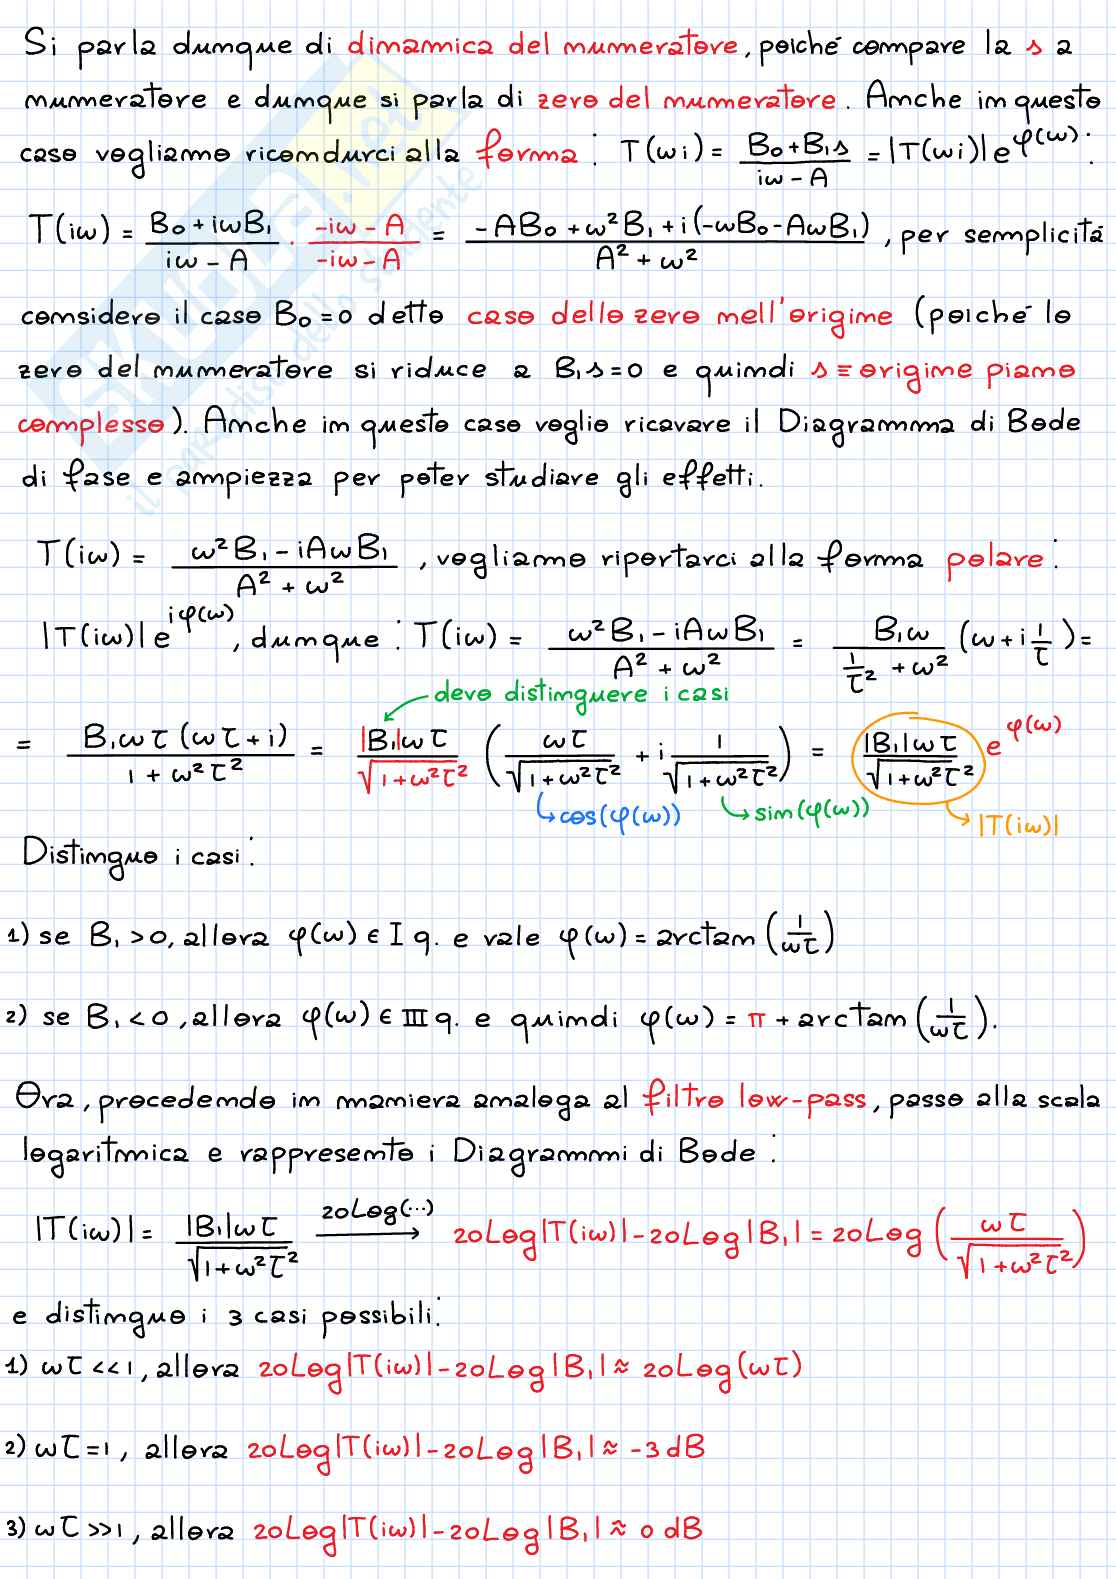 Si parla dunque di dinamica del numeratore, poiché compare la s a
numeratore e dunque si parla di zero del numeratore. Anche in questo
caso vogliamo ricondurci alla forma: T(ωi) = (B₀+B₁s)/(iω-A) = |T(ωi)|e^φ(ω).
T(iω) = (B₀+iωB₁)/(iω-A) · (-iω-A)/(-iω-A) = (-AB₀+ω²B₁+i(-ωB₀-AωB₁))/(A²+ω²), per semplicità
considero il caso B₀=0 detto caso dello zero nell'origine (poiché lo
zero del numeratore si riduce a B₁s=0 e quindi s≡origine piano
complesso). Anche in questo caso voglio ricavare il Diagramma di Bode
di fase e ampiezza per poter studiare gli effetti.
T(iω) = (ω²B₁-iAωB₁)/(A²+ω²), vogliamo riportarci alla forma polare:
|T(iω)|e^iφ(ω), dunque: T(iω) = (ω²B₁-iAωB₁)/(A²+ω²) = B₁ω/(1/τ²+ω²) (ω+i 1/τ) =
devo distinguere i casi
= B₁ωτ(ωτ+i)/(1+ω²τ²) = |B₁|ωτ/√(1+ω²τ²) (ωτ/√(1+ω²τ²) + i 1/√(1+ω²τ²)) = |B₁|ωτ/√(1+ω²τ²) e^φ(ω)
cos(φ(ω)) sin(φ(ω)) |T(iω)|
Distinguo i casi:
1) se B₁>0, allora φ(ω) ∈ I q. e vale φ(ω) = arctan(1/ωτ)
2) se B₁<0, allora φ(ω) ∈ III q. e quindi φ(ω) = π + arctan(1/ωτ).
Ora, procedendo in maniera analoga al filtro low-pass, passo alla scala
logaritmica e rappresento i Diagrammi di Bode:
|T(iω)| = |B₁|ωτ/√(1+ω²τ²) 20Log(...)→ 20Log|T(iω)|-20Log|B₁| = 20Log(ωτ/√(1+ω²τ²))
e distinguo i 3 casi possibili:
1) ωτ<<1, allora 20Log|T(iω)|-20Log|B₁| ≈ 20Log(ωτ)
2) ωτ=1, allora 20Log|T(iω)|-20Log|B₁| ≈ -3dB
3) ωτ>>1, allora 20Log|T(iω)|-20Log|B₁| ≈ 0 dB